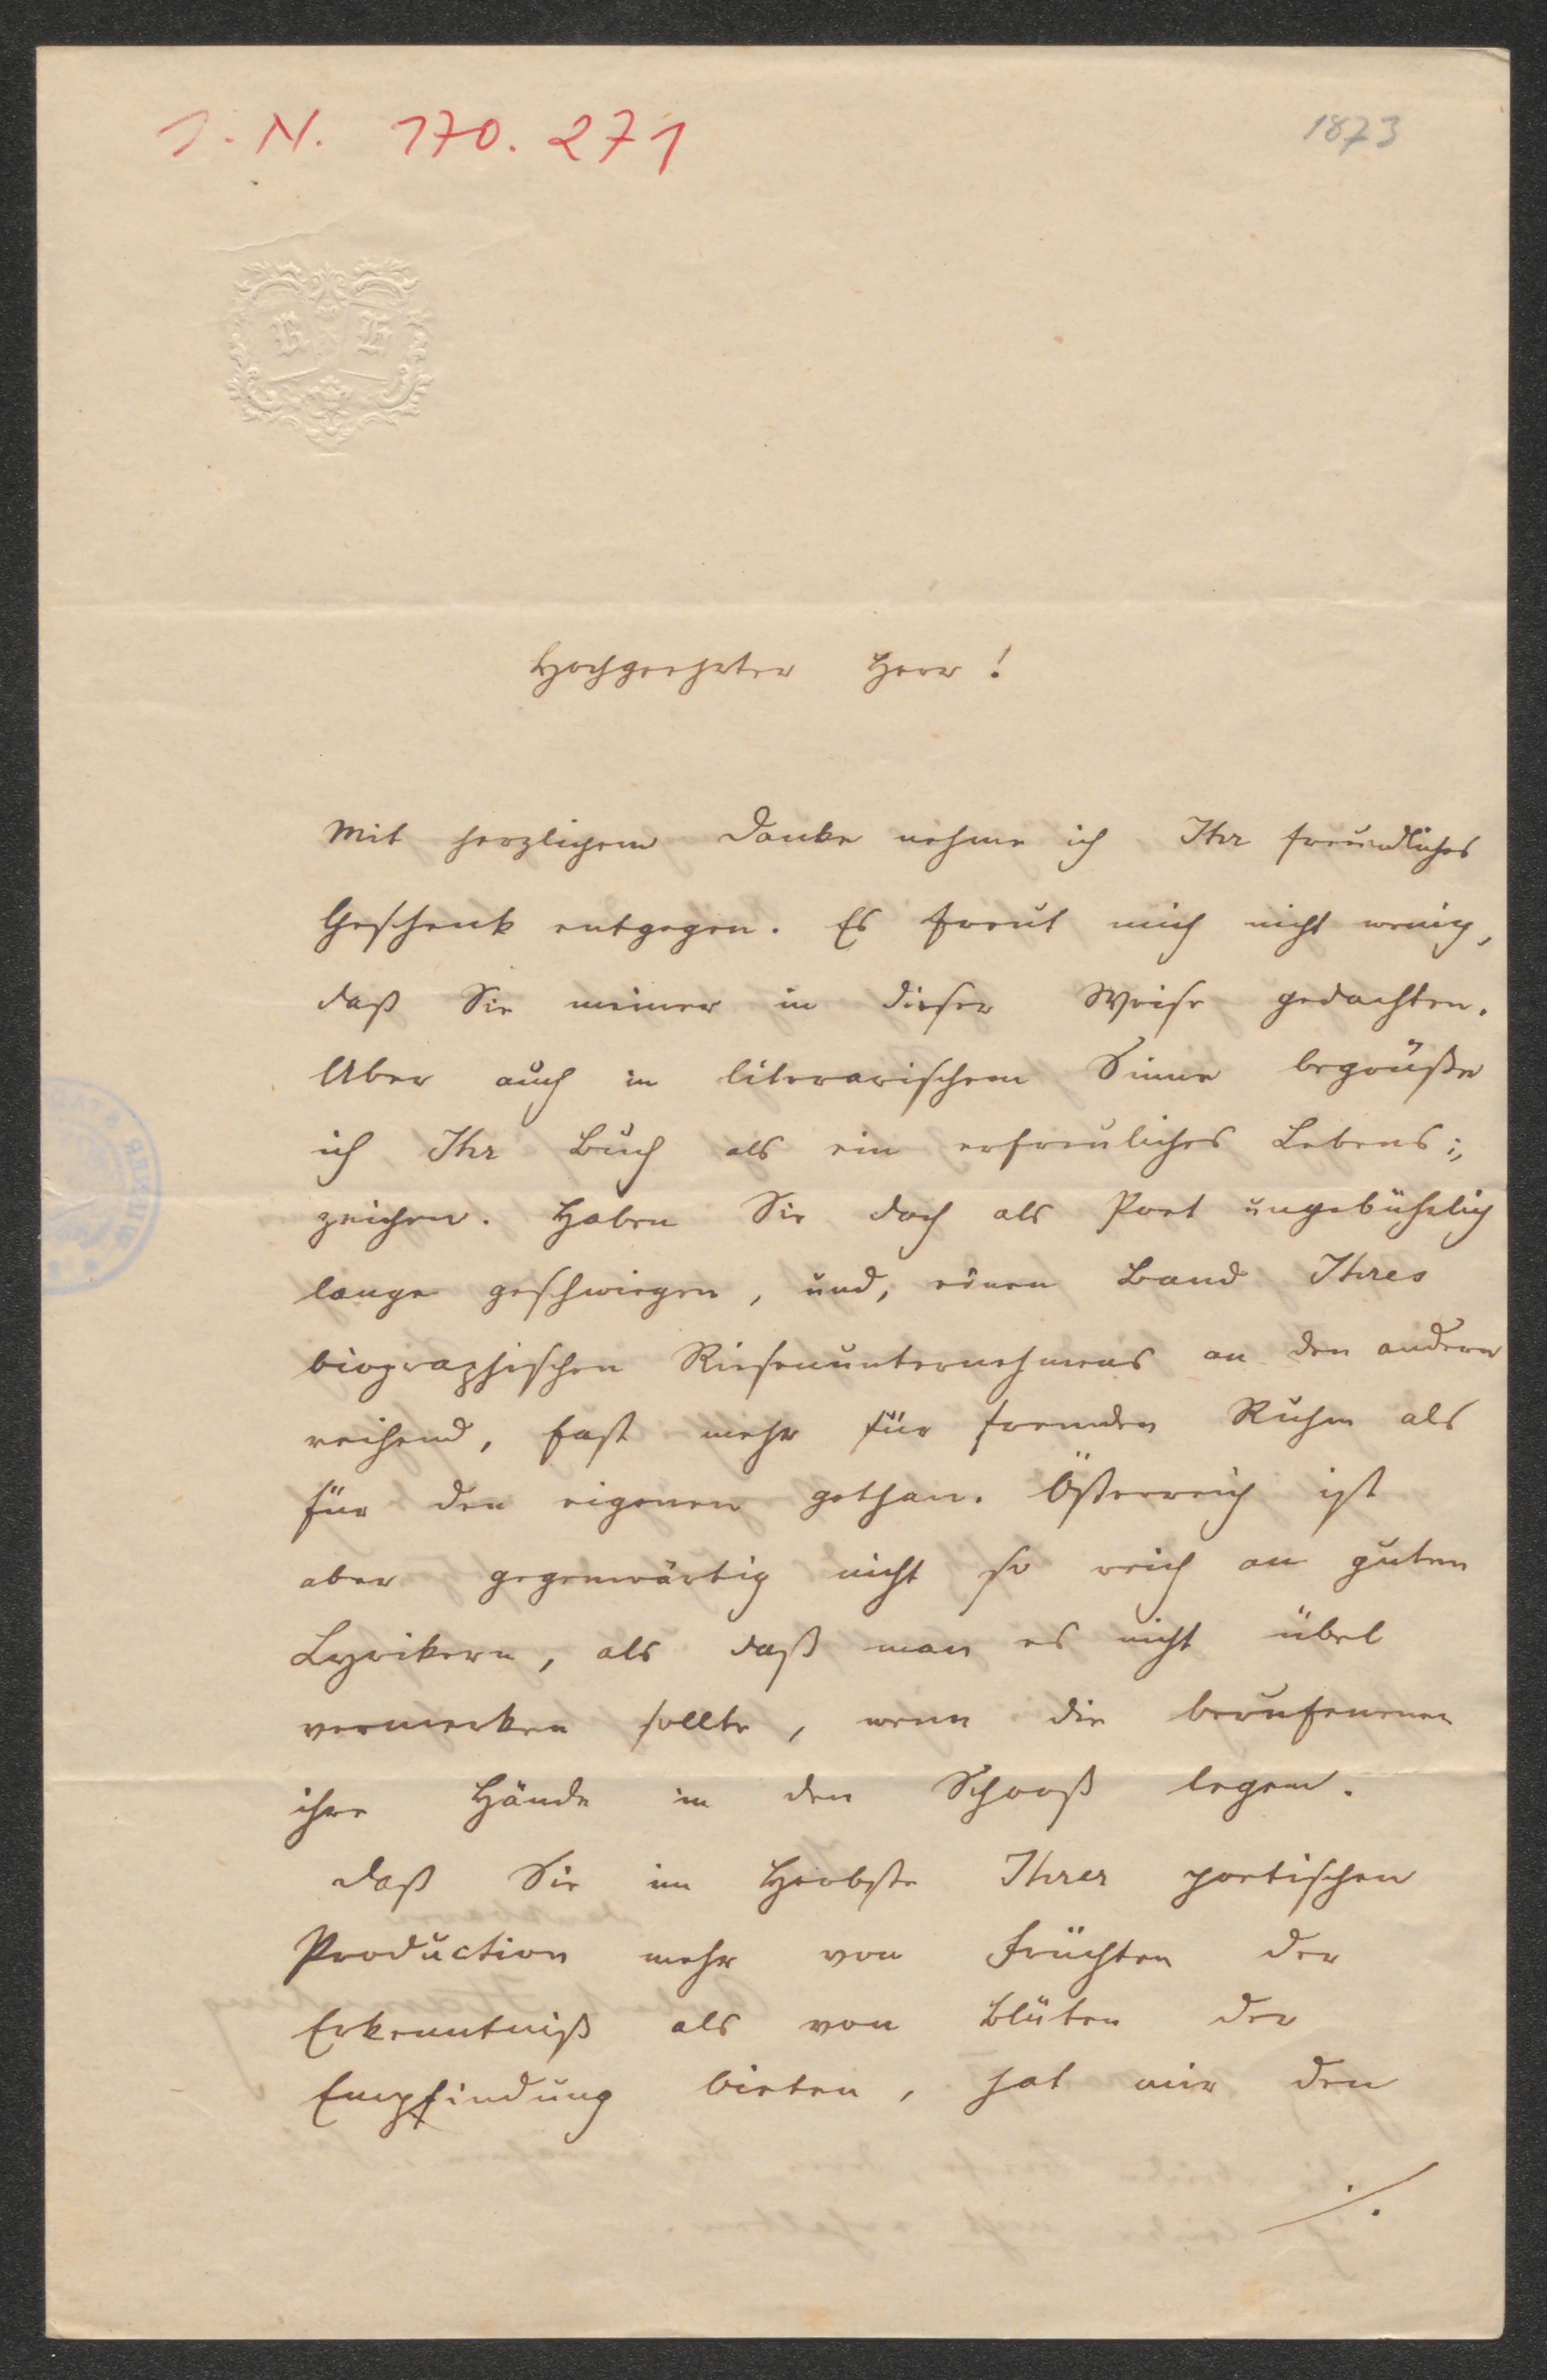 J. N. 170.271
1873
R H
Hochgeehrter Herr!
Mit herzlichem Danke nehme ich Ihr freundliches
Geschenk entgegen. Es freut mich nicht wenig,
daß Sie meiner in dieser Weise gedachten.
Aber auch in literarischem Sinne begrüße
ich Ihr Buch als ein erfreuliches Lebens=
zeichen. Haben Sie doch als Poet ungebührlich
lange geschwiegen, und, einen Band Ihres
biographischen Riesenunternehmens an den andern
reihend, fast mehr für fremden Ruhm als
für den eigenen gethan. Österreich ist
aber gegenwärtig nicht so reich an guten
Lyrikern, als daß man es nicht übel
vermerken sollte, wenn die berufenen
ihre Hände in den Schooß legen.
Daß Sie im Herbste Ihrer poetischen
Production mehr von Früchten der
Erkenntniß als von Blüten der
Empfindung bieten, hat mir den
./.